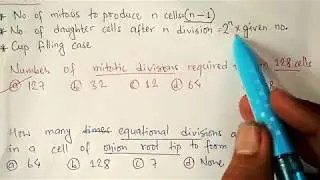 * No of mitosis to produce n cells=(n-1)
* No of daughter cells after n division = 2ⁿ x given no.
* Cup filling case
Number of mitotic divisions required 128 cells
ⓐ 127 ⓑ 32 ⓒ 12 ⓓ 64
How many times equational divisions a
in a cell of onion root tip to form
ⓐ 64 ⓑ 128 ⓒ 7 ⓓ None